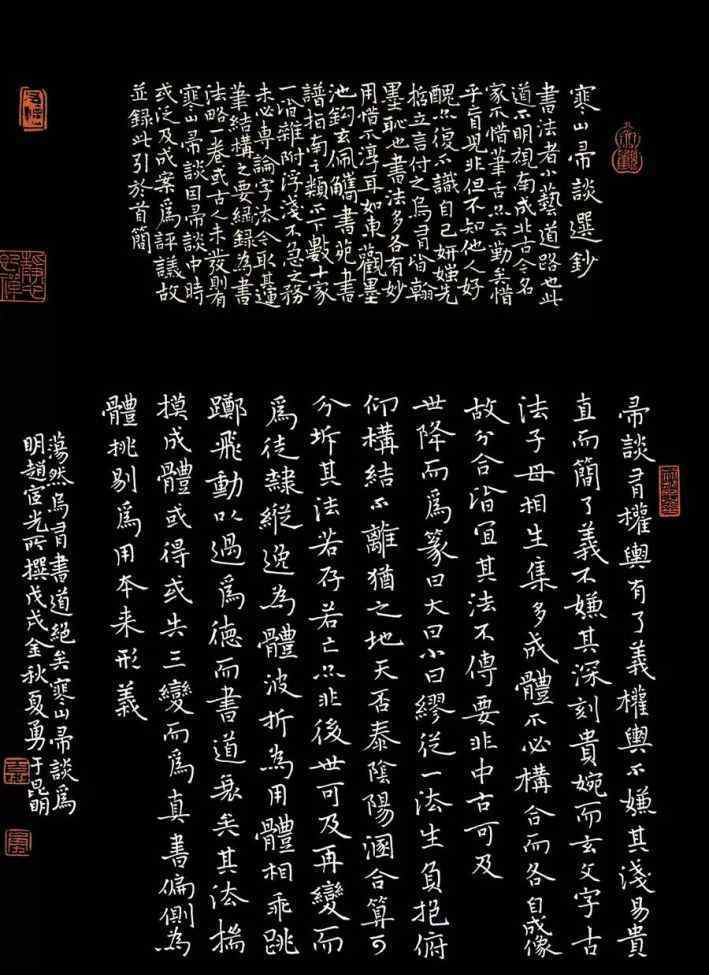 寒山帚談選鈔
書法者小藝道路也此
道不明視南成北古今名
家不惜筆舌只云勤矣惜
乎盲見非但不知他人好
醜只復不識自己妍媸先
哲立言付之烏有皆翰
墨恥也書法多各有妙
用惜不淳耳如東觀墨
池鈎玄佩觿書苑書
譜指南之類不下數十家
一涉雜附浮淺不急之務
未必專論字法今取其運
筆結構之要編錄為書
法略一卷或古人未發則有
寒山帚談因帚談中時
或泛及成案爲評議故
並錄此引於首簡
帚談有權輿有了義權輿不嫌其淺易貴
直而簡了義不嫌其深刻貴婉而玄文字古
法子母相生集多成體不必構合而各自成像
故分合皆宜其法不傳要非中古可及
世降而爲篆曰大曰小曰繆從一法生負抱俯
仰構結不離猶之地天否泰陰陽溷合算可
分坼其法若存若亡然非後世可及再變而
爲徒隸縱逸為體波折為用體相乖跳
躑飛動以過爲德而書道衰矣其法揣
摸成體或得或失三變而爲真書偏側為
體挑剔爲用本来形義
蕩然烏有書道絕矣寒山帚談爲
明趙宦光所撰戊戌金秋夏勇于昆明